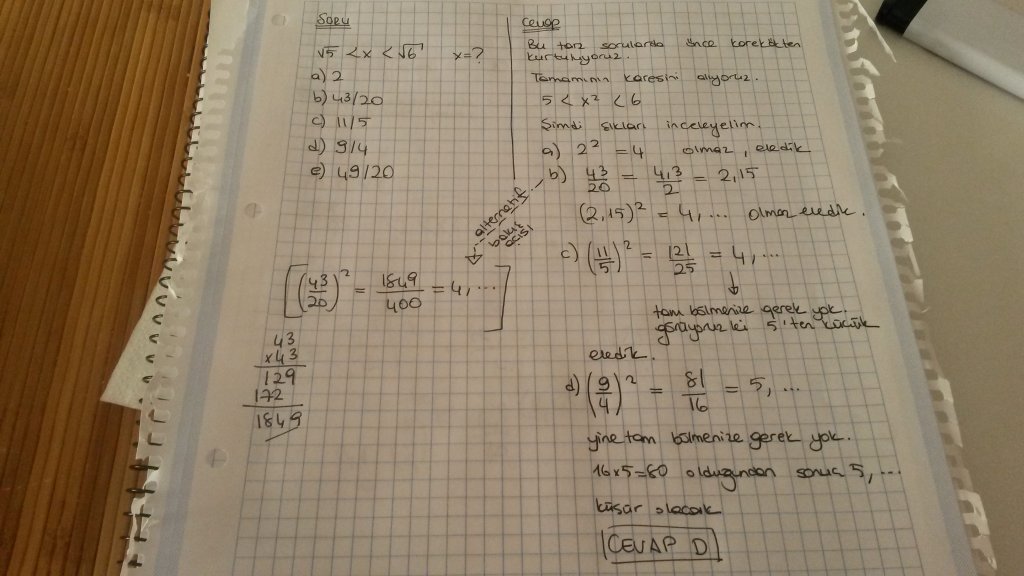 Soru
√5 < x < √6 x=?
a) 2
b) 43/20
c) 11/5
d) 9/4
e) 49/20
Cevap
Bu tarz sorularda önce karekökten
kurtuluyoruz.
Tamamının karesini alıyoruz.
5 < x² < 6
Şimdi şıkları inceleyelim.
a) 2² = 4 olmaz, eledik
b) 43/20 = 4,3/2 = 2,15
(2,15)² = 4,... olmaz eledik.
alternatif
bakış
açısı
[(43/20)² = 1849/400 = 4,...]
43
x43
129
172
1849
c) (11/5)² = 121/25 = 4,...
tam bölmenize gerek yok.
görüyoruz ki 5'ten küçük
eledik.
d) (9/4)² = 81/16 = 5,...
yine tam bölmenize gerek yok.
16x5=80 olduğundan sonuç 5,...
küsür olacak
CEVAP D